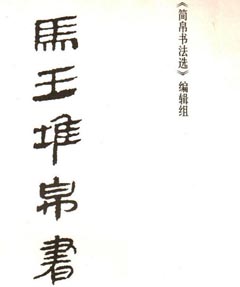 《简帛书法选》编辑组
馬王堆帛書